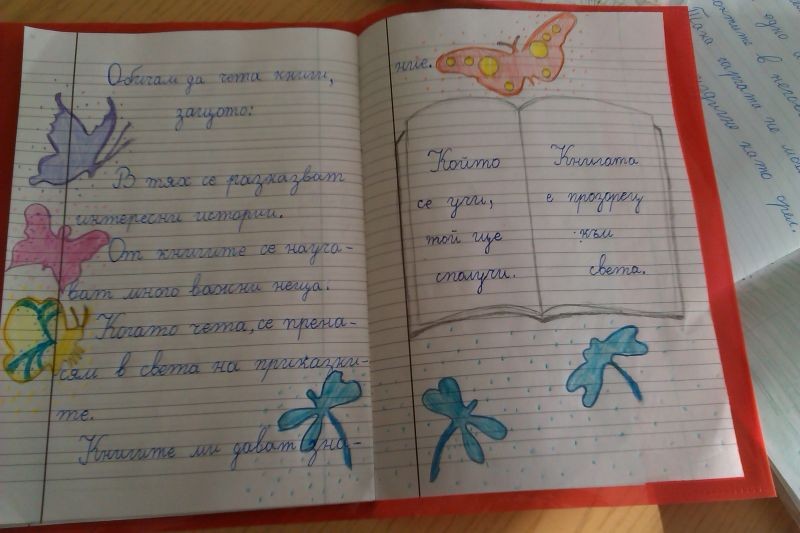 Обичам да чета книги,
защото:
В тях се разказват
интересни истории.
От книгите се науча-
ват много важни неща.
Когато чета, се прена-
сям в света на приказки-
те.
Книгите ми дават зна-
ние.
Който
се учи,
той ще
сполучи.
Книгата
е прозорец
към
света.
едно
в него
Така гаргата не
като орел.